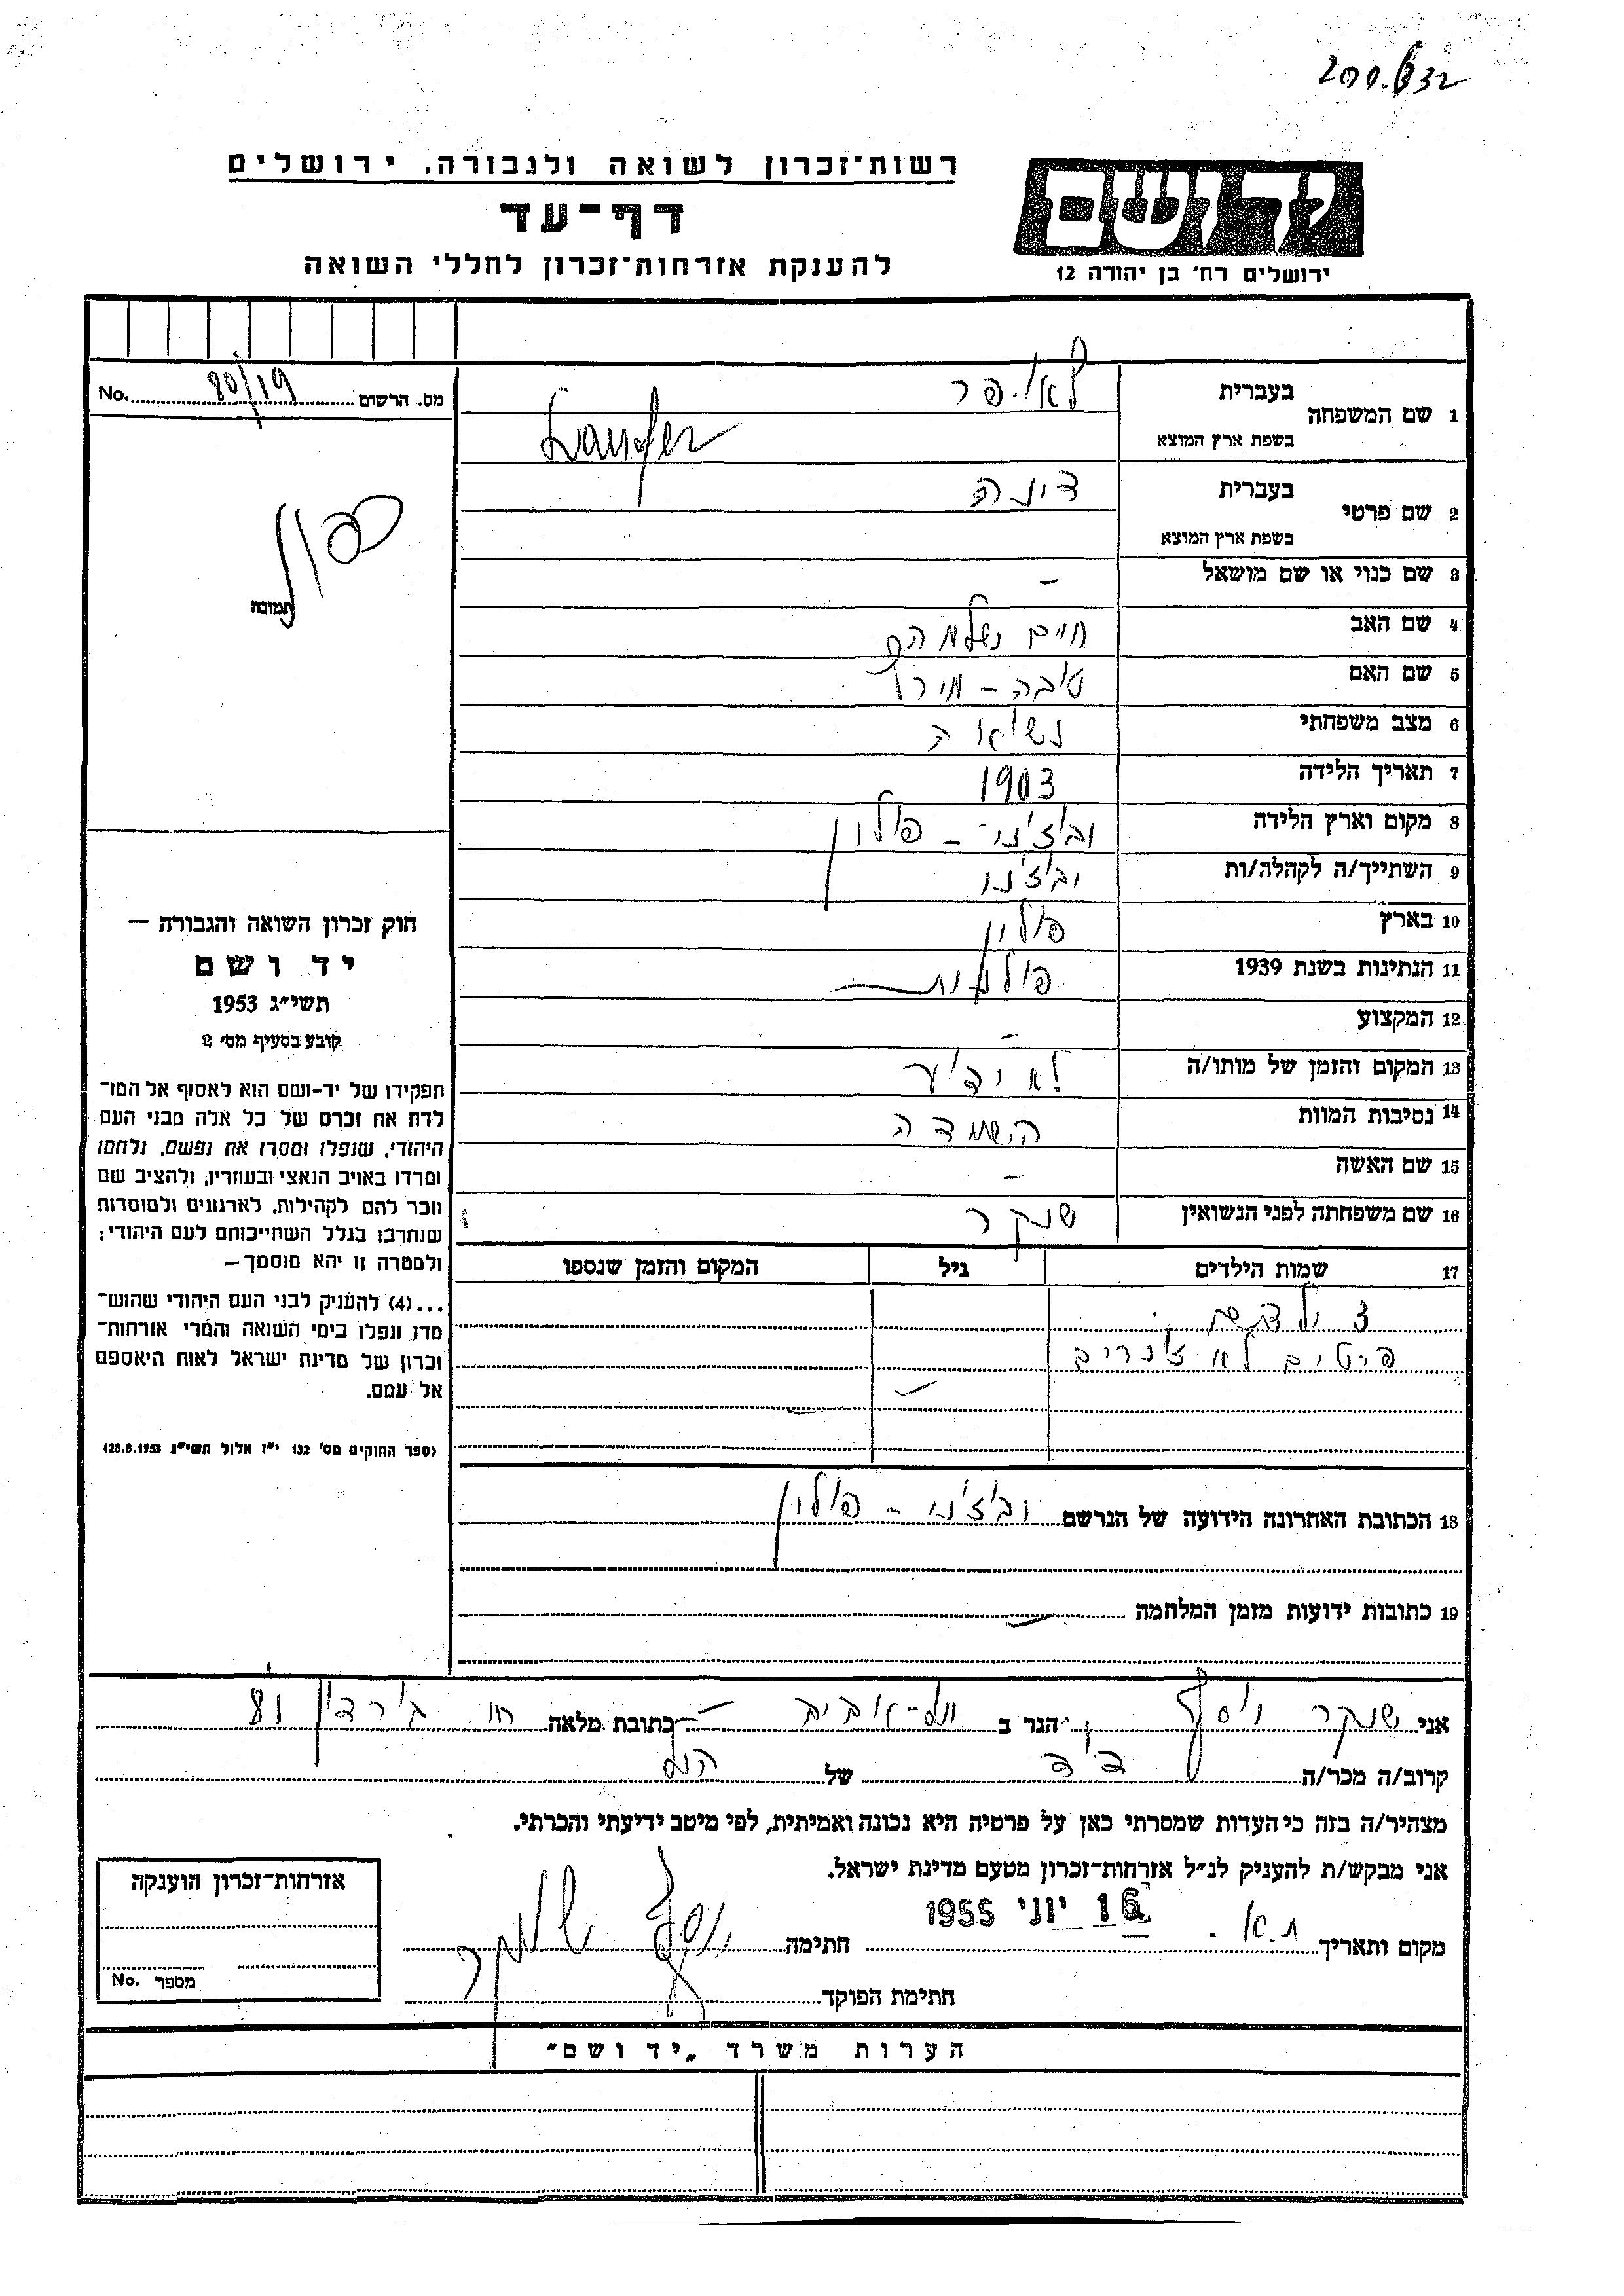 רשות־זכרון לשואה ולגבורה, ירושלים
דף־עד
להענקת אזרחות־זכרון לחללי השואה
יד ושם
ירושלים רח' בן יהודה 12
מס. הרשום 80/19 No.
תמונה
1 שם המשפחה
בעברית
בשפת ארץ המוצא
Laufer
2 שם פרטי
בעברית דינה
בשפת ארץ המוצא
3 שם כנוי או שם מושאל –
4 שם האב חיים
5 שם האם טובה –
6 מצב משפחתי נשואה
7 תאריך הלידה 1903
8 מקום וארץ הלידה – פולין
9 השתייך/ה לקהלה/ות
10 בארץ פולין
11 הנתינות בשנת 1939 פולנית
12 המקצוע –
13 המקום והזמן של מותו/ה לא ידוע
14 נסיבות המוות השמדה
15 שם האשה –
16 שם משפחתה לפני הנשואין שנקר
17 שמות הילדים גיל המקום והזמן שנספו
3 ילדים.
פרטים לא זוכרים
18 הכתובת האחרונה הידועה של הנרשם – פולין
19 כתובות ידועות מזמן המלחמה –
חוק זכרון השואה והגבורה –
יד ושם
תשי״ג 1953
קובע בסעיף מס׳ 2
תפקידו של יד־ושם הוא לאסוף אל המו־
לדת את זכרם של כל אלה מבני העם
היהודי, שנפלו ומסרו את נפשם, נלחמו
ומרדו באויב הנאצי ובעוזריו, ולהציב שם
וזכר להם לקהילות, לארגונים ולמוסדות
שנחרבו בגלל השתייכותם לעם היהודי;
ולמטרה זו יהא מוסמך –
...(4) להעניק לבני העם היהודי שהוש־
מדו ונפלו בימי השואה והמרי אזרחות־
זכרון של מדינת ישראל לאות היאספם
אל עמם.
(ספר החוקים מס׳ 132 י״ז אלול תשי״ג 28.8.1953)
אני שנקר יוסף הגר ב תל־אביב – כתובת מלאה
קרוב/ה מכר/ה דוד של הנ״ל
מצהיר/ה בזה כי העדות שמסרתי כאן על פרטיה היא נכונה ואמיתית, לפי מיטב ידיעתי והכרתי.
אני מבקש/ת להעניק לנ״ל אזרחות־זכרון מטעם מדינת ישראל.
מקום ותאריך ת.א. 16 יוני 1955 חתימה יוסף שנקר
חתימת הפוקד
אזרחות־זכרון הוענקה
מספר No.
הערות משרד „יד ושם״